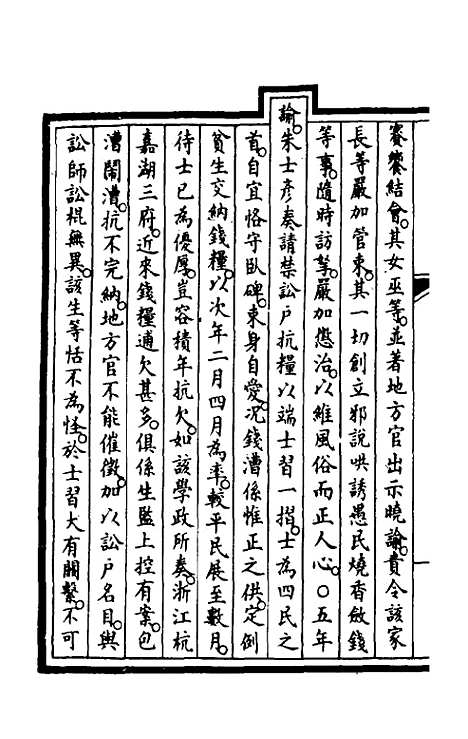 賽饗結會。其女巫等。並著地方官出示曉諭。責令該家
長等嚴加管束。其一切創立邪說哄誘愚民燒香斂錢
等事。隨時訪拏。嚴加懲治。以維風俗而正人心。〇五年
諭。朱士彥奏請禁訟戶抗糧以端士習一摺。士為四民之
首。自宜恪守臥碑。束身自愛。況錢漕係惟正之供。定例
貧生交納錢糧。以次年二月四月為率。較平民展至數月。
待士已為優厚。豈容積年抗欠。如該學政所奏。浙江杭
嘉湖三府。近來錢糧逋欠甚多。俱係生監上控有案。包
漕鬧漕。抗不完納。地方官不能催徵。加以訟戶名目。與
訟師訟棍無異。該生等恬不為怪。於士習大有關繫。不可